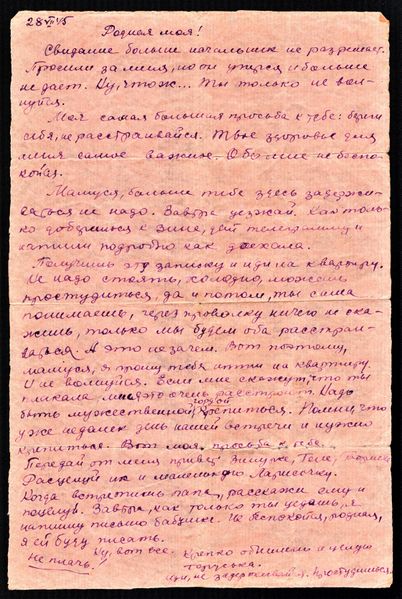 28 VI 45
Родная моя!
Свидание больше начальник не разрешает.
Просили за меня, но он уперся и больше
не дает. Ну, что ж... Ты только не вол-
нуйся.
Моя самая большая просьба к тебе: береги
себя, не расстраивайся. Твое здоровье для
меня самое важное. Обо мне не беспо-
койся.
Мамуся, больше тебе здесь задержи-
ваться не надо. Завтра уезжай. Как толь-
ко доберешься к Зине, дай телеграмму и
напиши подробно как доехала.
Получишь эту записку и иди на квартиру.
Не надо стоять, холодно, можешь
простудиться, да и потом, ты сама
понимаешь, через проволку ничего не ска-
жешь, только мы будем оба расстраи-
ваться. А это не зачем. Вот поэтому,
мамуся, я прошу тебя итти на квартиру
И не волнуйся. Если мне скажут, что ты
плакала, меня это очень расстроит. Надо
быть мужественной, гордой, крепиться. Помни, что
уже недалек день нашей встречи и нужно
крепиться. Вот моя просьба к тебе.
Передай от меня привет Зинушке, Теле,
Расцелуй их и маленькую Ларисочку.
Когда встретишь папу, расскажи ему и
поцелуй. Завтра, как только ты уедешь, я
напишу письмо бабушке. Не беспокойся, родная,
я ей буду писать.
Ну, вот все. Крепко обнимаю и целую
Не плачь!!
Иди, не задерживайся. Простудишься.